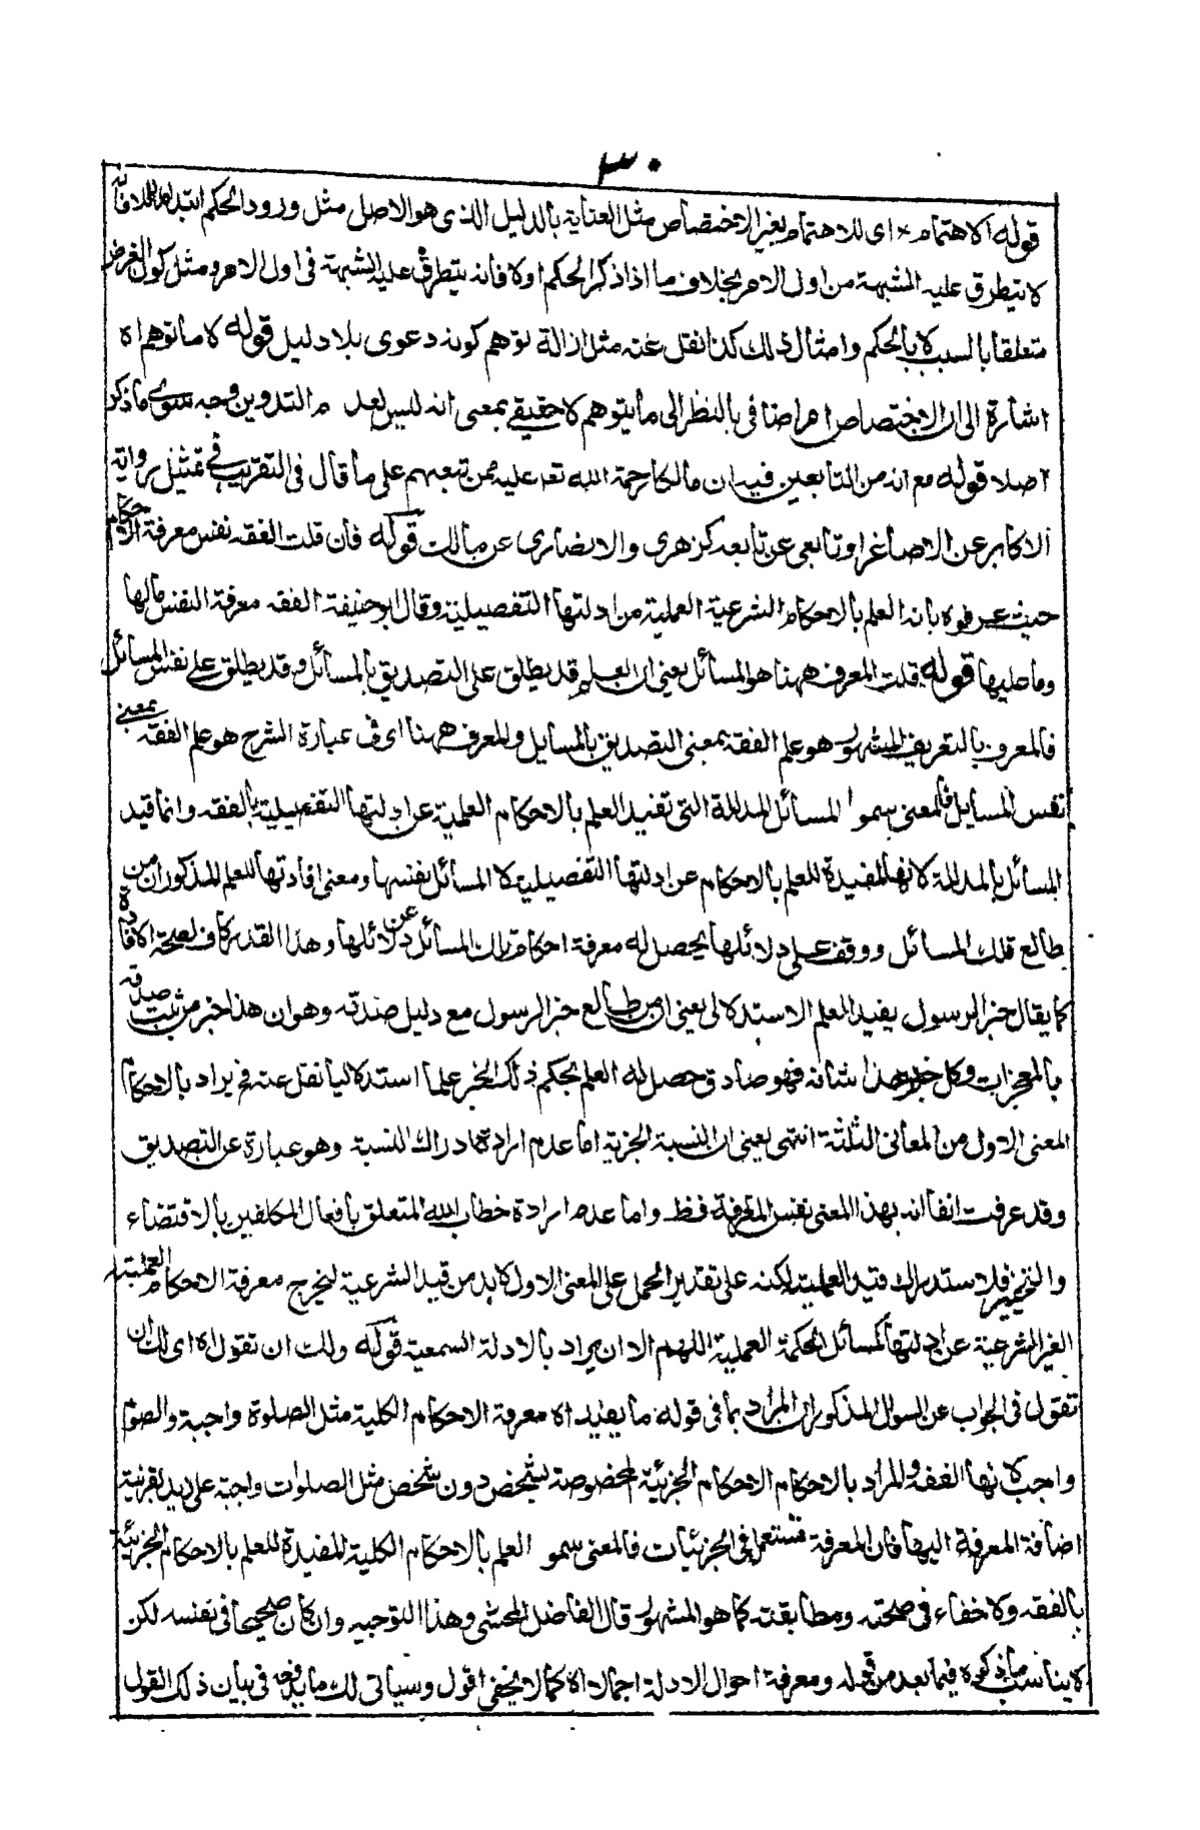 ٣٠
قوله الاهتمام × اى للاهتمام بغير الاختصاص مثل العناية بالدليل الذى هو الاصل مثل ورود الحكم ابتداء
لا يتطرق عليه الشبهة من اول الامر بخلاف ما اذا ذكر الحكم اولا فانه يتطرق عليه الشبهة فى اول الامر ومثل كون الغرض
متعلقا بالسبب لا بالحكم وامثال ذلك كذا نقل عنه مثل ازالة توهم كونه دعوى بلا دليل قوله لا ما توهم اه
اشارة الى ان الاختصاص امر اضافى بالنظر الى ما يتوهم لا حقيقى بمعنى انه ليس لعدم التدوين وجه سوى ما ذكر
اصلا قوله مع انه من التابعين فيه ان مالكا رحمة الله تعا عليه ممن تبعهم على ما قال فى التقريب فى تمثيل رواية
الاكابر عن الاصاغر او تابعى عن تابعه كزهرى والانصارى عن مالك قوله فان قلت الفقه نفس معرفة الاحكام
حيث عرفوه بانه العلم بالاحكام الشرعية العملية من ادلتها التفصيلية وقال ابو حنيفة الفقه معرفة النفس مالها
وما عليها قوله قلت المعرف ههنا هو المسائل يعنى ان العلم قد يطلق على التصديق بالمسائل وقد يطلق على نفس المسائل
فالمعرف بالتعريف المشهور هو علم الفقه بمعنى التصديق بالمسايل والمعرف ههنا اى فى عبارة الشرح هو علم الفقه بمعنى
نفس المسايل فالمعنى سموا المسائل المدللة التى تفيد العلم بالاحكام العملية عن ادلتها التفصيلية بالفقه وانما قيد
المسائل بالمدللة لانها المفيدة للعلم بالاحكام عن ادلتها التفصيلية لا المسائل بنفسها ومعنى افادتها للعلم المذكور ان من
طالع تلك المسائل ووقف على دلائلها يحصل له معرفة احكام تلك المسائل عن دلائلها وهذا القدر كاف لصحة الافادة
كما يقال خبر الرسول يفيد العلم الاستدلالى يعنى ان من طالع خبر الرسول مع دليل صدقه وهو ان هذا خبر من ثبت صدقه
بالمعجزات وكل خبر هذا شانه فهو صادق حصل له العلم بحكم ذلك الخبر علما استدلاليا نقل عنه فح يراد بالاحكام
المعنى الاول من المعانى الثلثة انتهى يعنى ان النسبة الجزية اما عدم ارادة ادراك النسبة وهو عبارة عن التصديق
وقد عرفت انفا انه بهذا المعنى نفس المعرفة فظ واما عدم ارادة خطاب الله المتعلق بافعال المكلفين بالاقتضاء
والتخيير فلاستدراك قيد العملية لكنه على تقدير الحمل على المعنى الاول لا بد من قيد الشرعية ليخرج معرفة الاحكام العملية
الغير الشرعية عن ادلتها كمسائل الحكمة العملية اللهم الا ان يراد بالادلة السمعية قوله ولك ان تقول اه اى لك ان
تقول فى الجواب عن السوال المذكور ان المراد بما فى قوله ما يفيد اه معرفة الاحكام الكلية مثل الصلوة واجبة والصوم
واجب لانها الفقه والمراد بالاحكام الاحكام الجزئية المخصوصة بشخص دون شخص مثل الصلوات واجبة على زيد بقرينة
اضافة المعرفة اليها فان المعرفة تستعمل فى الجزئيات فالمعنى سموا العلم بالاحكام الكلية المفيدة للعلم بالاحكام الجزئية
بالفقه ولا خفاء فى صحته ومطابقته كما هو المشهور قال الفاضل المحشى وهذا التوجيه وان كان صحيحا فى نفسه لكن
لا يناسب ما ذكره فيما بعد من قوله ومعرفة احوال الادلة اجمالا اه كما لا يخفى اقول وسياتى لك ما يدفعه فى بيان ذلك القول